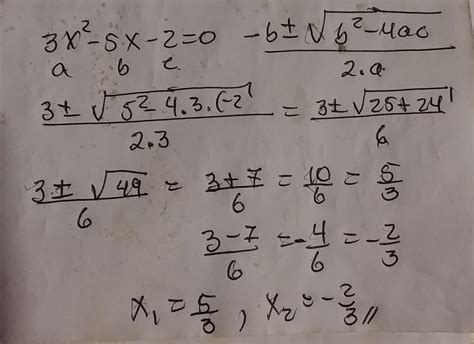 3x²-5x-2=0   -b±√b²-4ac / 2.a
a b c
3±√5²-4.3.(-2 / 2.3 = 3±√25+24 / 6
3±√49 / 6 = 3+7 / 6 = 10/6 = 5/3
3-7 / 6 = -4/6 = -2/3
x₁ = 5/3 , x₂ = -2/3 //